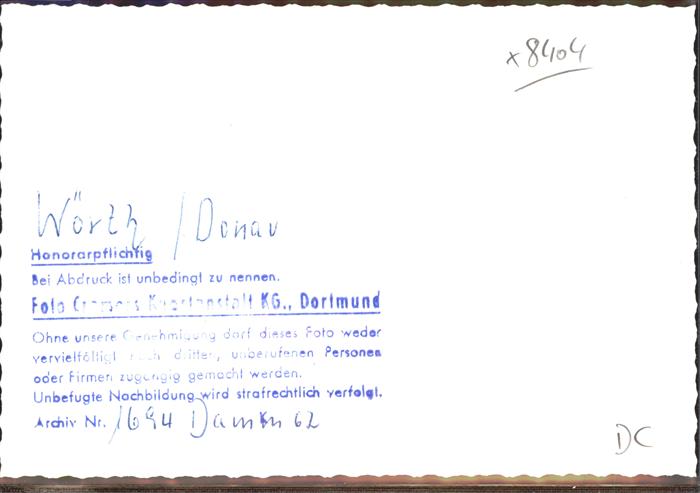 x8404
Wörth / Donau
Honorarpflichtig
Bei Abdruck ist unbedingt zu nennen.
Foto Cramers Kunstanstalt KG., Dortmund
Ohne unsere Genehmigung darf dieses Foto weder
vervielfältigt noch dritten, unberufenen Personen
oder Firmen zugängig gemacht werden.
Unbefugte Nachbildung wird strafrechtlich verfolgt.
Archiv Nr. 1694 62
DC